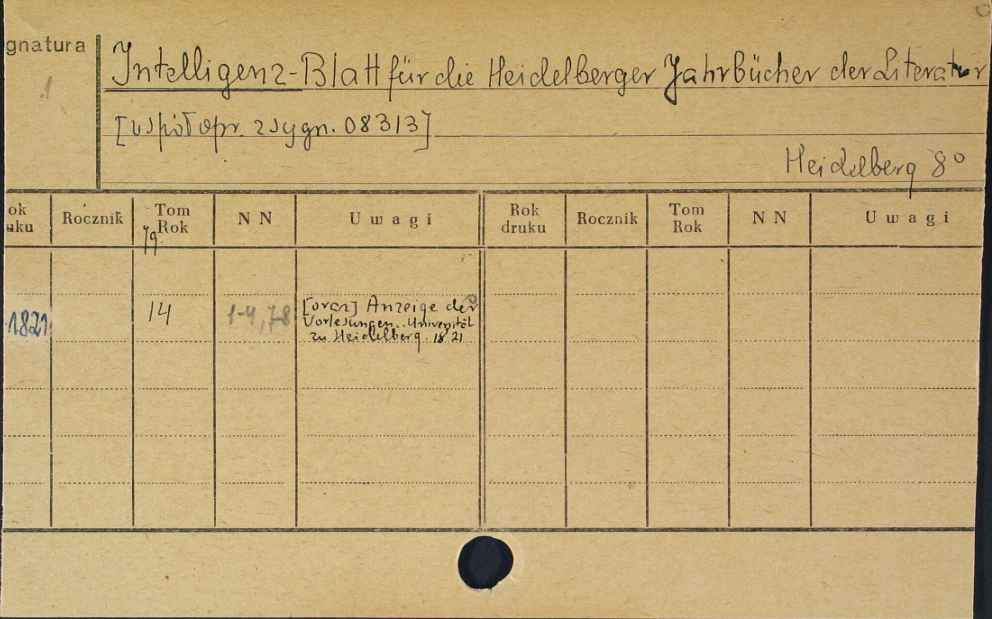 gnatura
Intelligenz-Blatt für die Heidelberger Jahrbücher der Literatur
[współopr. z sygn. 08313]
Heidelberg 8°
ok uku Rocznik Tom Rok Jg. N N Uwagi Rok druku Rocznik Tom Rok N N Uwagi
1821 14 1-4, 7-8 [oraz] Anzeige der
Vorlesungen.. Universität
zu Heidelberg. 1821